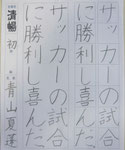 サッカーの試合
に勝利し喜んだ
サッカーの試合
に勝利し喜んだ
清暢 初
青山夏